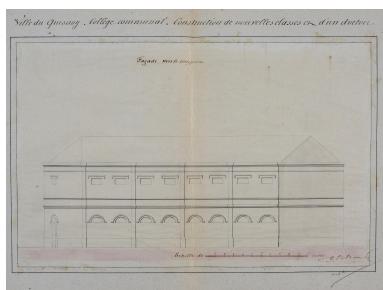 Ville du Quesnoy. Collège communal. Construction de nouvelles classes et d'un dortoir.
Façade vers la
Echelle de